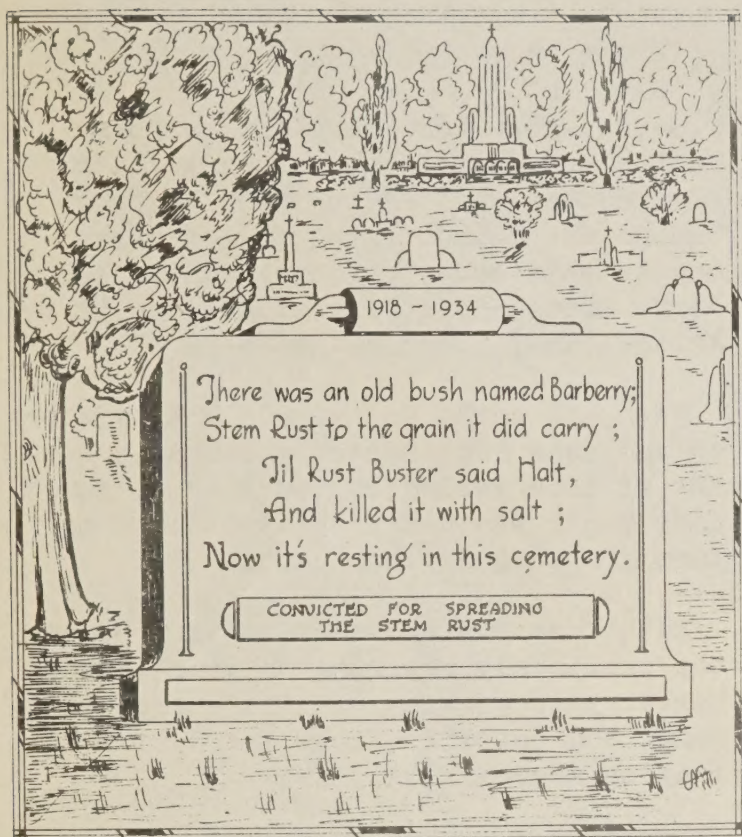 1918 - 1934
There was an old bush named Barberry;
Stem Rust to the grain it did carry ;
Til Rust Buster said Halt,
And killed it with salt ;
Now it's resting in this cemetery.
CONVICTED FOR SPREADING
THE STEM RUST